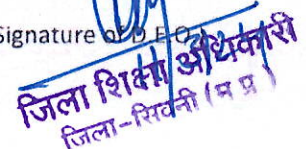 Signature of D.E.O.
जिला शिक्षा अधिकारी
जिला-सिवनी (म प्र)